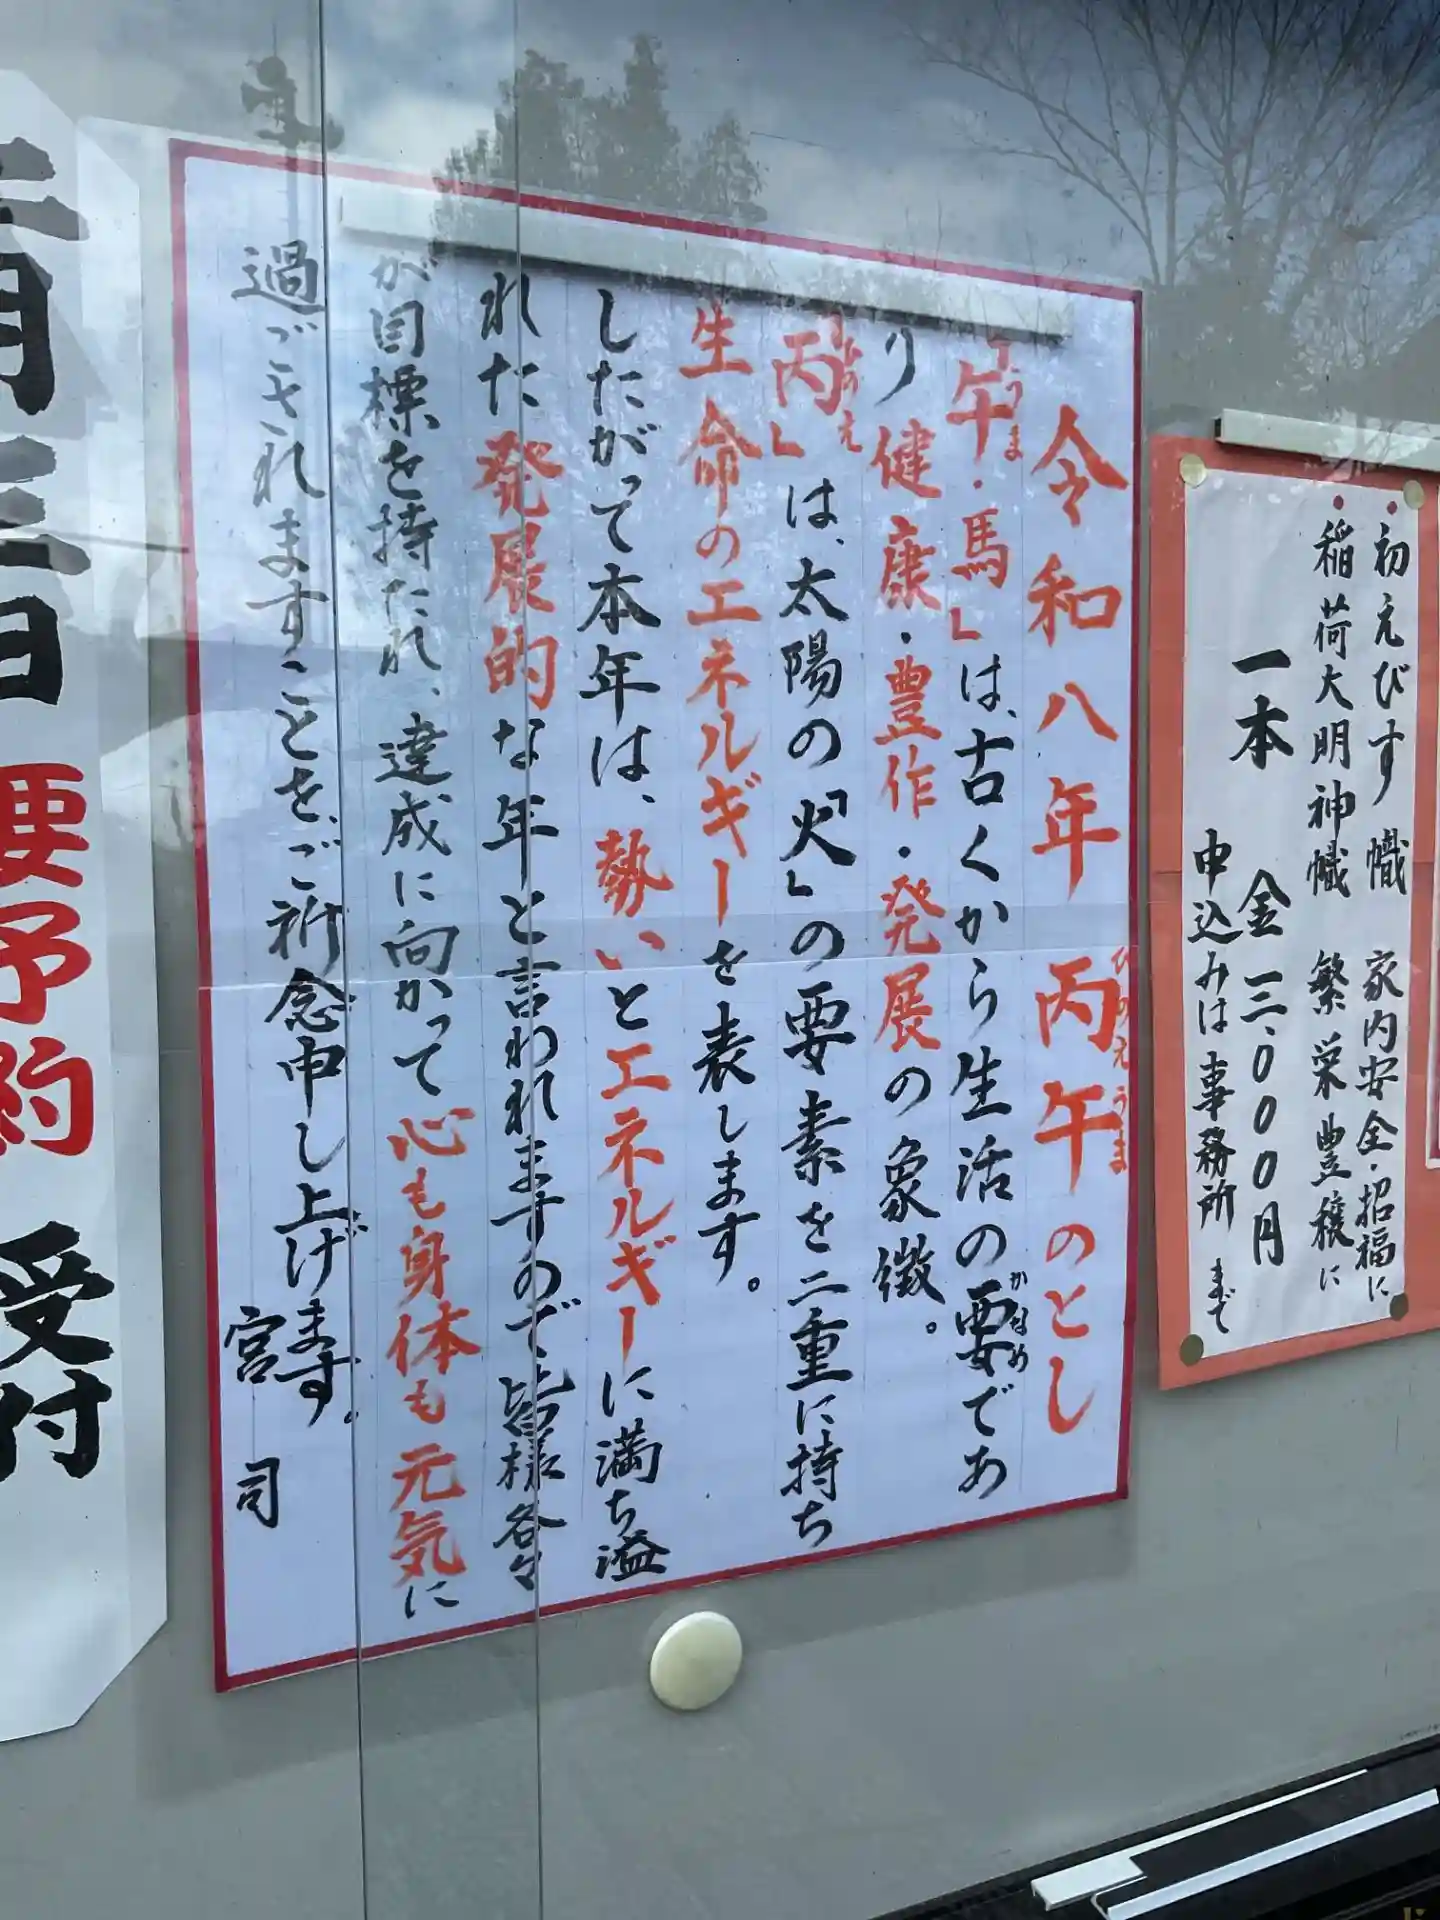 初えびす 幟 家内安全・招福に
稲荷大明神幟 繁栄豊穣に
一本 金三、〇〇〇円
申込みは事務所まで
令和八年 丙午のとし
ひのえうま
「午・馬」は、古くから生活の要であ
うま
かなめ
り健康・豊作・発展の象徴。
「丙」は、太陽の「火」の要素を二重に持ち
ひのえ
生命のエネルギーを表します。
したがって本年は、勢いとエネルギーに満ち溢
れた発展的な年と言われますので皆様各々
が目標を持たれ、達成に向かって心も身体も元気に
過ごされますことを、ご祈念申し上げます。
宮 司
要予約 受付